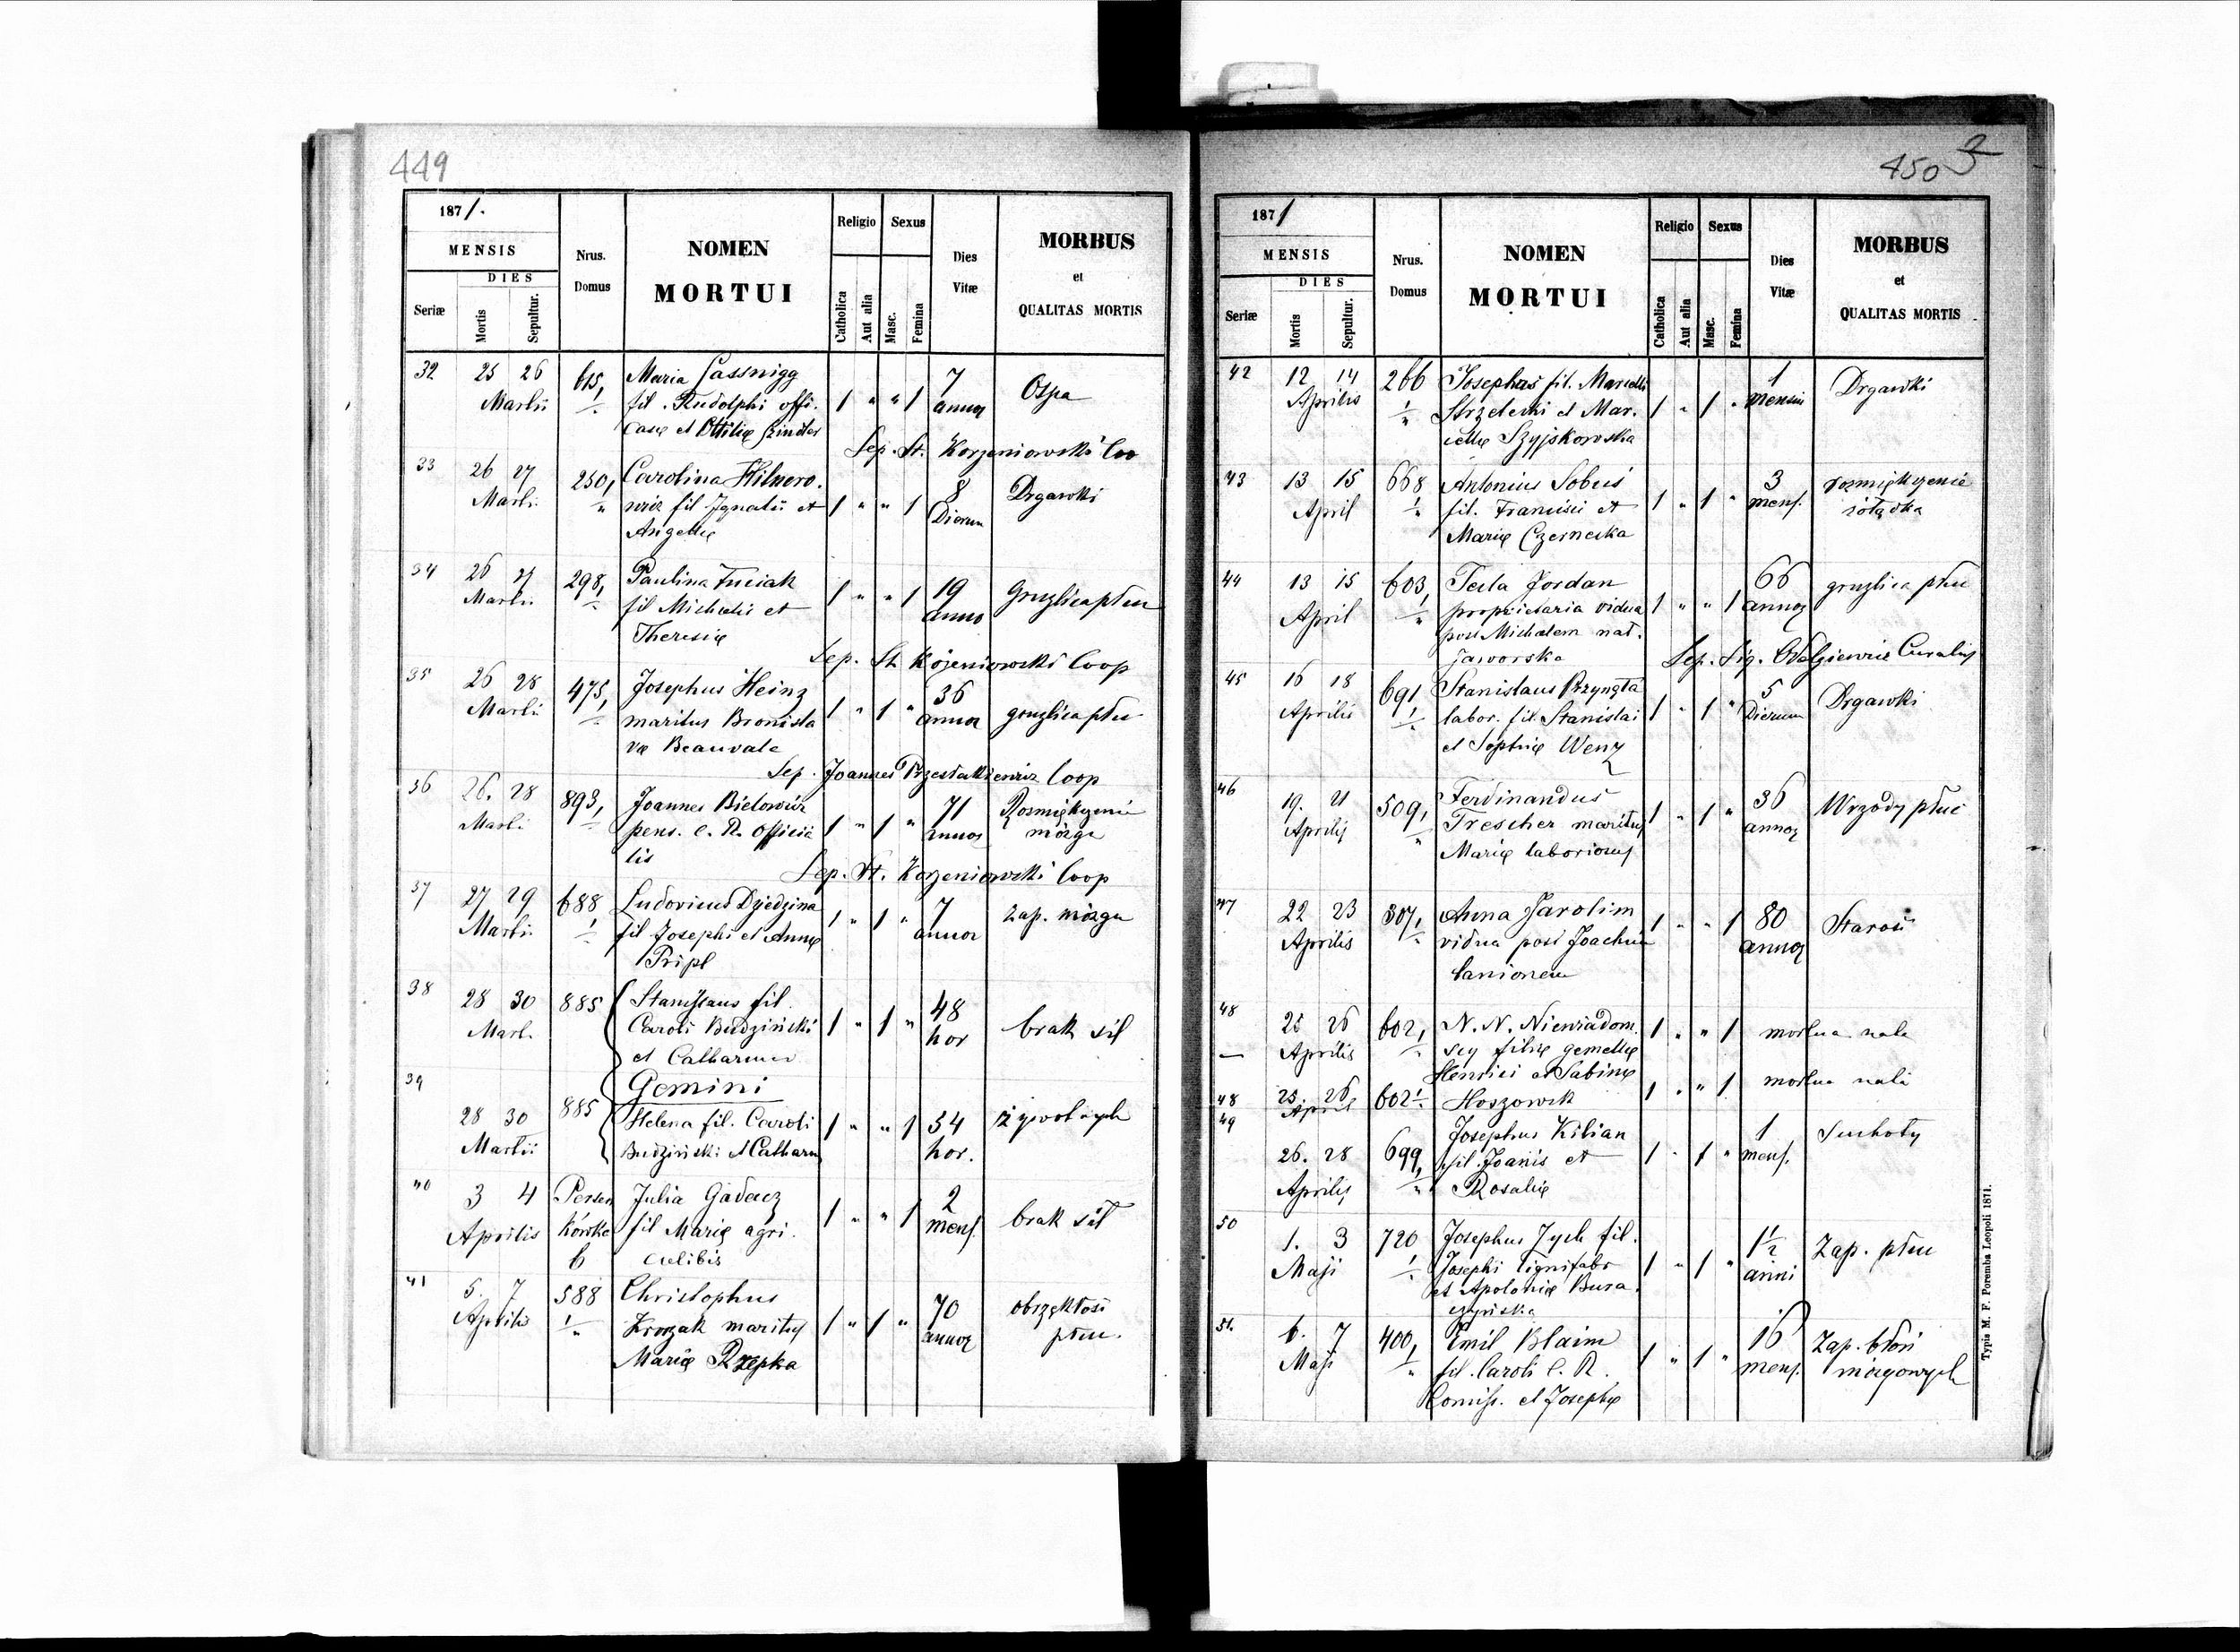 449
187/.
MENSIS
DIES
Seriæ
Mortis
Sepultur.
Nrus.
Domus
NOMEN
MORTUI
Religio
Catholica
Aut alia
Sexus
Masc.
Femina
Dies
Vitæ
MORBUS
et
QUALITAS MORTIS
32 25 26 615, Maria Lassnigg 7 Ospa
Martii fil. Rudolphi offi. 1 " " 1 annor
casæ et Ottiliæ
Sep. St. Korzeniowski
33 26 27 250, Carolina Hilnero. 8 Drgawki
Marti. wicz fil Ignatii et 1 " " 1 Dierum
Angelæ
34 26 27 298, Paulina Fuciak 19 gruzlica płuc
Martii fil Michaelis et 1 " " 1 anno
Theresiæ
Sep. St Kożeniowski Coop
35 26 28 475, Josephus Heinz 36
Martii maritus Bronisla 1 " 1 " annor gruzlica płuc
væ Beauvale
Sep. Joannes Coop
36 26. 28 893, Joannes Bielowicz 71 Rozmiękczenie
Marti. pens. C. R. Officia 1 " 1 " annor mózgu
lis
Sep. St. Korzeniowski Coop
37 27 29 688 Ludovicus Dziedzina 7 zap. mózgu
Marti. 1 fil Josephi et Annæ 1 " 1 " annor
Pripl
38 28 30 885 Stanislaus fil. 48
Mart. Caroli Budziński 1 " 1 " hor brak sił
et Catharinæ
39 Gemini
28 30 885 Helena fil. Caroli 1 " " 1 54 żywotnych
Martii Budziński et Cathari hor.
40 3 4 Persen Julia Gadacz 2
Aprilis kówka fil Mariæ agri. 1 " " 1 mens. brak sił
6 celibis
41 5. 7 588 Christophus 70 obrzękłość
Aprilis 1 maritus 1 " 1 " annor płuc.
Mariæ Rzepka
450
187/
MENSIS
DIES
Seriæ
Mortis
Sepultur.
Nrus.
Domus
NOMEN
MORTUI
Religio
Catholica
Aut alia
Sexus
Masc.
Femina
Dies
Vitæ
MORBUS
et
QUALITAS MORTIS
42 12 14 266 Josephus fil. Marcelli 1 Drgawki
Aprilis 1 Strzelecki et Mar. 1 " 1 " mensis
cellæ Szyjkowska
43 13 15 668 Antonius Sobuś 3 rozmiękczenie
April 1 fil. Francisci et 1 " 1 " mens. żołądka
Mariæ Czernecka
44 13 15 603, Tecla Jordan 66 gruzlica płuc
April proprietaria vidua 1 " " 1 annor
post Michalem nat.
Jaworska Sep. Sig. Curatus
45 16 18 691, Stanislaus Przyngta 5 Drgawki
Aprilis labor. fil. Stanislai 1 " 1 " Dierum
et Sophiæ Wenz
46 19. 21 509, Ferdinandus 36 Wrzody płuc
Aprilis Trescher maritus 1 " 1 " annor
Mariæ laboriosus
47 22 23 307, Anna Jarolim 80 Starość
Aprilis vidua post Joachim 1 " " 1 annor
lanionem
48 25 26 602, N. N. Niewiadom. 1 " " 1 mortua nata
Aprilis scy filiæ gemellæ
Henrici et Sabinæ
48 25. 26 602 1 Hoszowsk 1 " " 1 mortua nata
April
49 Josephus Kilian 1 Suchoty
26. 28 699, fil. Joanis et 1 " 1 " mens.
Aprilis Rosaliæ
50 1. 3 720 Josephus Zych fil. 1½ Zap. płuc
Maji 1 Josephi lignifabr 1 " 1 " anni
et Apoloniæ Bura.
czyńska
51. 6. 7 400, Emil Blaim 16 Zap. błon
Maji fil. Caroli C. R. 1 " 1 " mens. mózgowych
Comiss. et Josephæ
Typis M. F. Poremba Leopoli 1871.